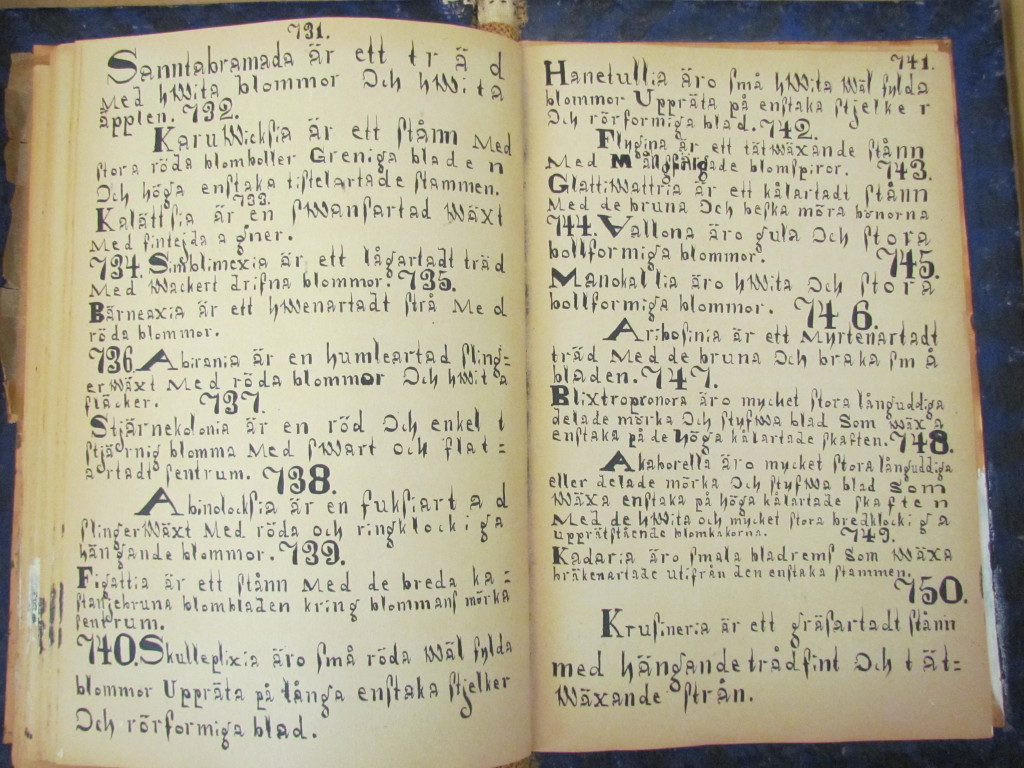 731.
Sanntabramada är ett träd
Med hWita blommor Och hWita
äpplen. 732.
KaruWicksia är ett stånn Med
stora röda blomboller Greniga bladen
Och höga enstaka tistelartade stammen.
733.
Kalättsia är en sWansartad Wäxt
Med fintejda agner.
734. Simblimexia är ett lågartadt träd
Med Wackert drifna blommor. 735.
Bärneaxia är ett hWenartadt strå Med
röda blommor.
736. Abirania är en humleartad sling=
erWäxt Med röda blommor Och hWita
fläcker. 737.
Stjärnekolonia är en röd Och enkelt
stjärnig blomma Med sWart och flat=
artadt sentrum. 738.
Abinolocksia är en fuksiartad
slingerWäxt Med röda och ringklockiga
hängande blommor. 739.
Figattia är ett stånn Med de breda ka=
stanjebruna blombladen kring blommans mörka
sentrum.
740. Skulleplixia äro små röda Wäl fylda
blommor Uppräta på långa enstaka stjelker
Och rörformiga blad.
741.
Hanetullia äro små hWita Wäl fylda
blommor Uppräta på enstaka stjelker
Och rörformiga blad. 742.
Flygina är ett tätWäxande stånn
Med Mångfärgade blomspiror. 743.
GlattiWattria är ett kålartadt stånn
Med de bruna Och beska möra bönorna
744. Vallona äro gula Och stora
bollformiga blommor. 745.
Manokallia äro hWita Och stora
bollformiga blommor. 746.
Aribosinia är ett Myrtenartadt
träd Med de bruna Och braka små
bladen. 747.
Blixtropronora äro mycket stora långuddiga
delade mörka Och styfWa blad Som Wäxa
enstaka på de höga kålartade skaften. 748.
Akaborella äro mycket stora långuddiga
eller delade mörka Och styfWa blad Som
Wäxa enstaka på höga kålartade skaften
Med de hWita och mycket stora bredklockiga
upprätstående blomkakorna. 749.
Kadaria äro smala bladrems Som Wäxa
bräkenartade utifrån den enstaka stammen.
750.
Krusineria är ett gräsartadt stånn
med hängande trådfint Och tät=
Wäxande strån.